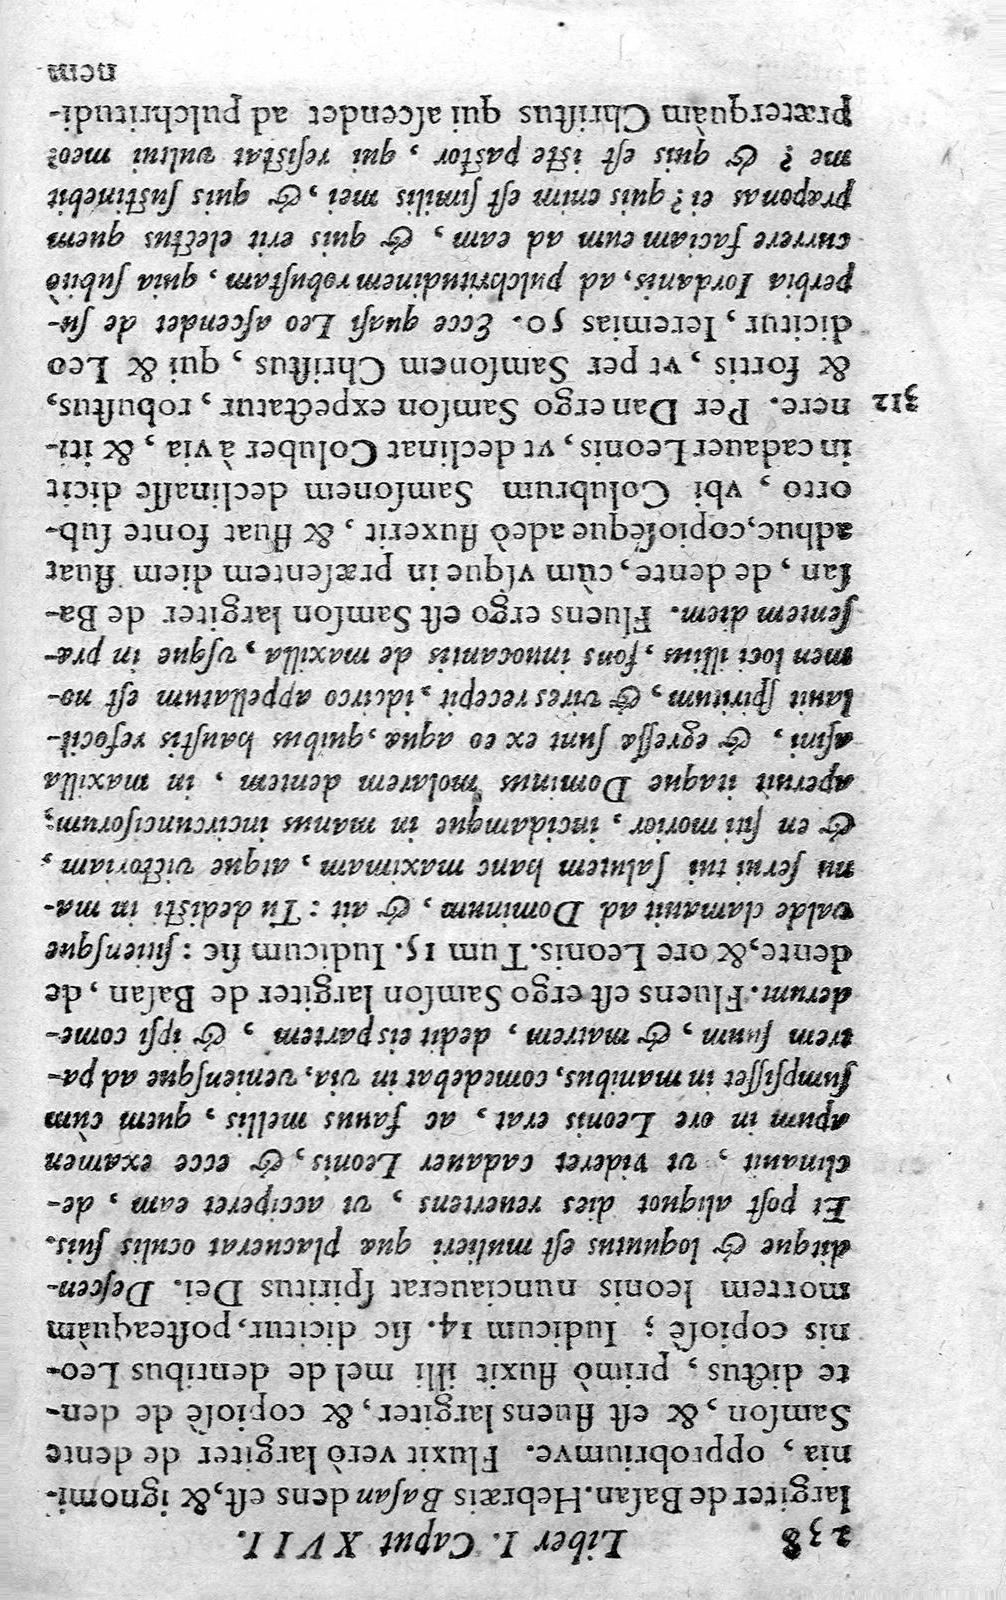 238 Liber I. Caput XVII.
largiter de Basan. Hebræis Basan dens est, & ignomi-
nia, opprobriumve. Fluxit verò largiter de dente
Samson, & est fluens largiter, & copiosè de den-
te dictus, primò fluxit illi mel de dentibus Leo-
nis copiosè; Iudicum 14. sic dicitur, posteaquàm
mortem leonis nunciauerat spiritus Dei. Descen-
ditque & loquutus est mulieri quæ placuerat oculis suis.
Et post aliquot dies reuertens, vt acciperet eam, de-
clinauit, vt videret cadauer Leonis, & ecce examen
apum in ore Leonis erat, ac fauus mellis, quem cùm
sumpsisset in manibus, comedebat in via, veniensque ad pa-
trem suum, & matrem, dedit eis partem, & ipsi come-
derunt. Fluens est ergo Samson largiter de Basan, de
dente, & ore Leonis. Tum 15. Iudicum sic: sitiensque
valde clamauit ad Dominum, & ait: Tu dedisti in ma-
nu serui tui salutem hanc maximam, atque victoriam,
& en siti morior, incidamque in manus incircuncisorum;
aperuit itaque Dominus molarem dentem, in maxilla
asini, & egressæ sunt ex eo aquæ, quibus haustis refocil-
lauit spiritum, & vires recepit, idcirco appellatum est no-
men loci illius, fons inuocantis de maxilla, vsque in præ-
sentem diem. Fluens ergo est Samson largiter de Ba-
san, de dente, cùm vsque in præsentem diem fluat
adhuc, copiosèque adeò fluxerit, & fluat fonte sub-
orto, vbi Colubrum Samsonem declinasse dicit
in cadauer Leonis, vt declinat Coluber à via, & iti-
nere. Per Dan ergo Samson expectatur, robustus, 312
& fortis, vt per Samsonem Christus, qui & Leo
dicitur, Ieremias 50. Ecce quasi Leo ascendet de su-
perbia Iordanis, ad pulchritudinem robustam, quia subitò
currere faciam eum ad eam, & quis erit electus quem
præponas ei? quis enim est similis mei, & quis sustinebit
me? & quis est iste pastor, qui resistat vultui meo?
præterquàm Christus qui ascendet ad pulchritudi-
nem